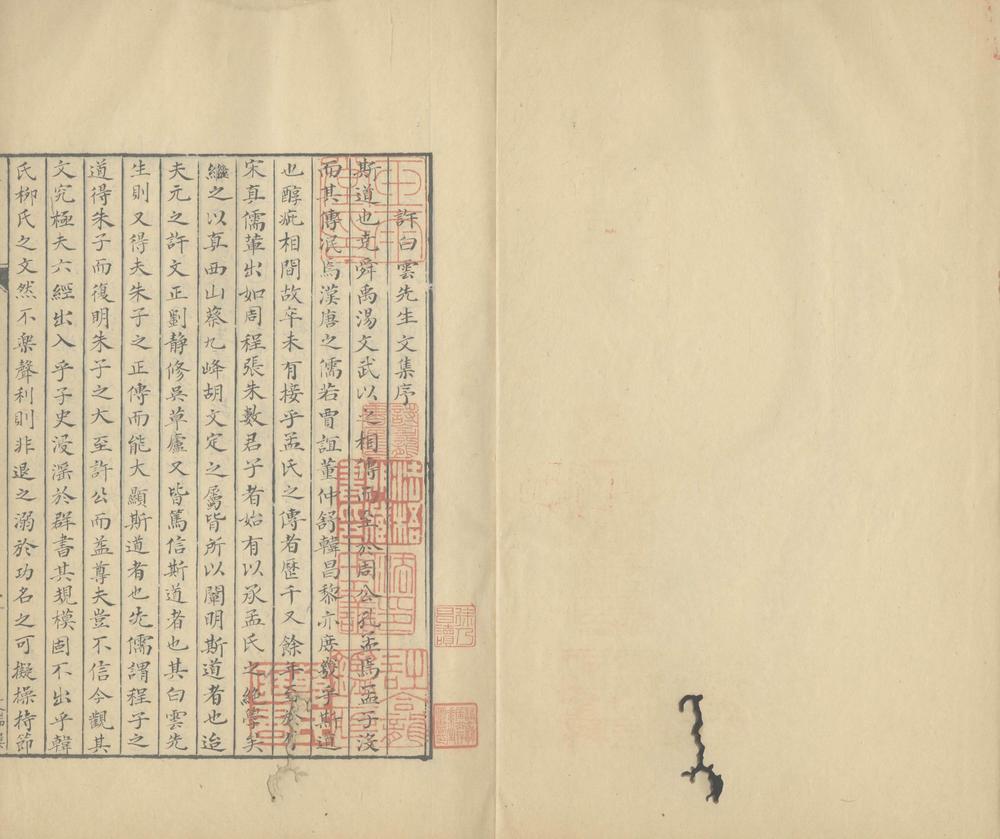 許白雲先生文集序
斯道也堯舜禹湯文武以之相傳而至於周公孔孟焉孟子沒
而其傳泯焉漢唐之儒若賈誼董仲舒韓昌黎亦庶幾乎斯道
也醇疵相間故卒未有接乎孟氏之傳者歷千又餘年至於有
宋真儒軰出如周程張朱數君子者始有以承孟氏之絶學矣
繼之以真西山蔡九峰胡文定之屬皆所以闡明斯道者也迨
夫元之許文正劉静修吳草廬又皆篤信斯道者也其白雲先
生則又得夫朱子之正傳而能大顯斯道者也先儒謂程子之
道得朱子而復明朱子之大至許公而益尊夫豈不信今觀其
文究極夫六經出入乎子史浸滛於群書其規模固不出乎韓
氏栁氏之文然不樂聲利則非退之溺於功名之可擬操持節